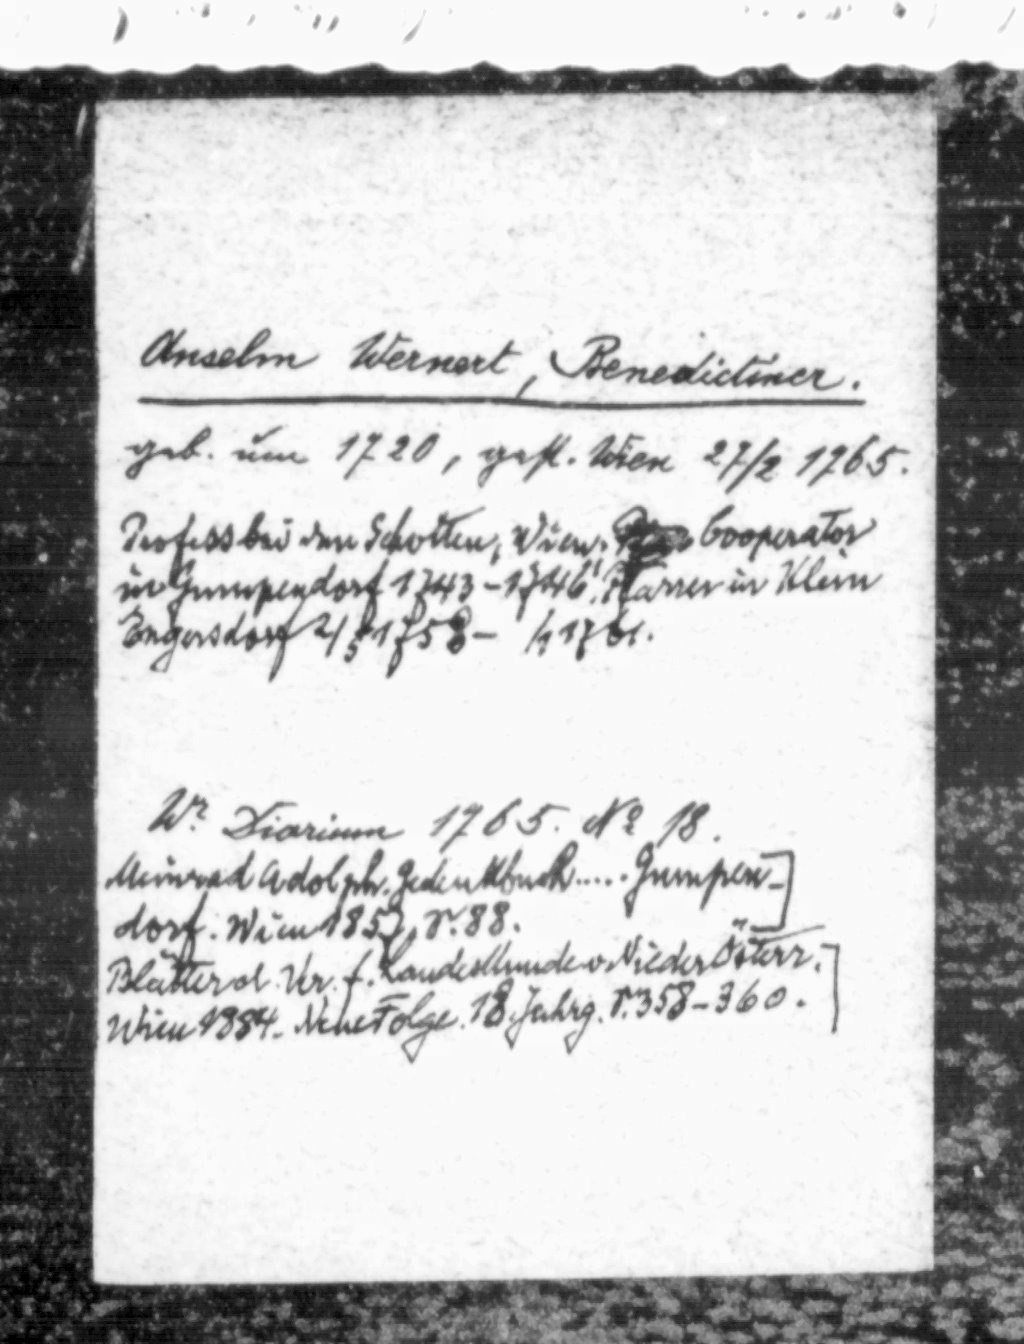 Anselm Wernert, Benedictiner.
geb. um 1720, gest. Wien 27/2 1765.
Profess bei den Schotten, Wien. Cooperator
in Gumpendorf 1743-1746. Pfarrer in Klein
Engersdorf 2/5 1758 - 1761.
Wr. Diarium 1765. No 18.
Meinrad Adolph. Gedenkbuch ..... Gumpen-
dorf. Wien 1857, S. 88.
Blätter d. Ver. f. Landeskunde v. Nieder Österr.
Wien 1884. Neue Folge. 18. Jahrg. S. 358-360.